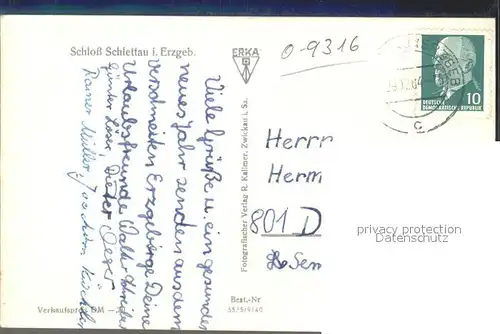 Schloß Schlettau i. Erzgeb.
ERKA
0-9316
10
DEUTSCHE
DEMOKRATISCHE REPUBLIK
C
Viele Grüße u. ein gesundes
neues Jahr senden aus dem
verschneiten Erzgebirge Deine
Urlaubsfreunde Walter
Günter Dieter
Rainer Müller, Joachim
Fotografischer Verlag R. Kallmer, Zwickau i. Sa.
Herrn
Herm
801 D
privacy protection
Datenschutz
Verkaufspreis DM
Best.-Nr